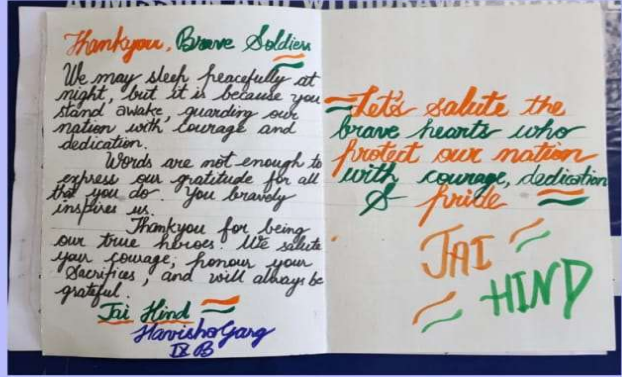 Thankyou, Brave Soldiers
We may sleep peacefully at
night, but it is because you
stand awake, guarding our
nation with courage and
dedication.
Words are not enough to
express our gratitude for all
that you do. You bravely
inspires us.
Thankyou for being
our true heroes. We salute
your courage, honour your
Sacrifices, and will always be
grateful.
Jai Hind
Havisha Garg
IX B
Let's salute the
brave hearts who
protect our nation
with courage, dedication
& pride
JAI
HIND